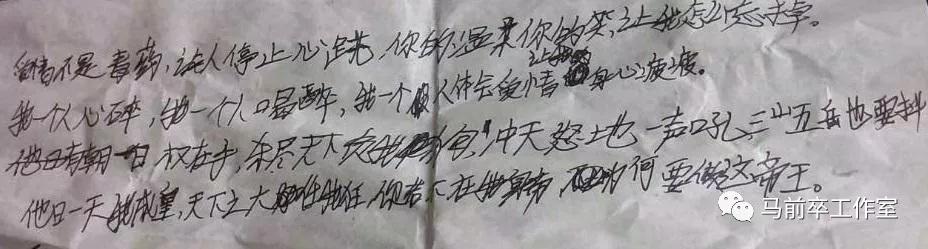 爱情不是毒药，让人停止心跳，你的温柔你的笑，让我怎么忘掉。
我一个人心碎，我一个人喝醉，我一个人体会爱情让我身心疲惫。
他日有朝一日权在手，杀尽天下负我狗，冲天怒地一声吼，三山五岳也要抖
他日一天我成皇，天下之大唯我狂，你若不在我身旁，为何要做这帝王。
马前卒工作室